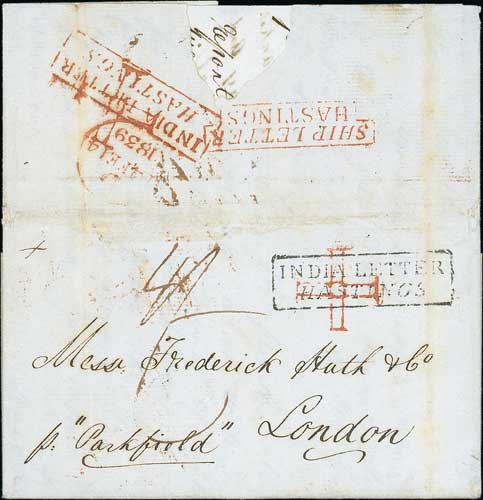 INDIA LETTER
HASTINGS
SHIP LETTER
HASTINGS
1839
INDIA LETTER
HASTINGS
Messrs. Frederick Huth & Co
London
p. "Parkfield"